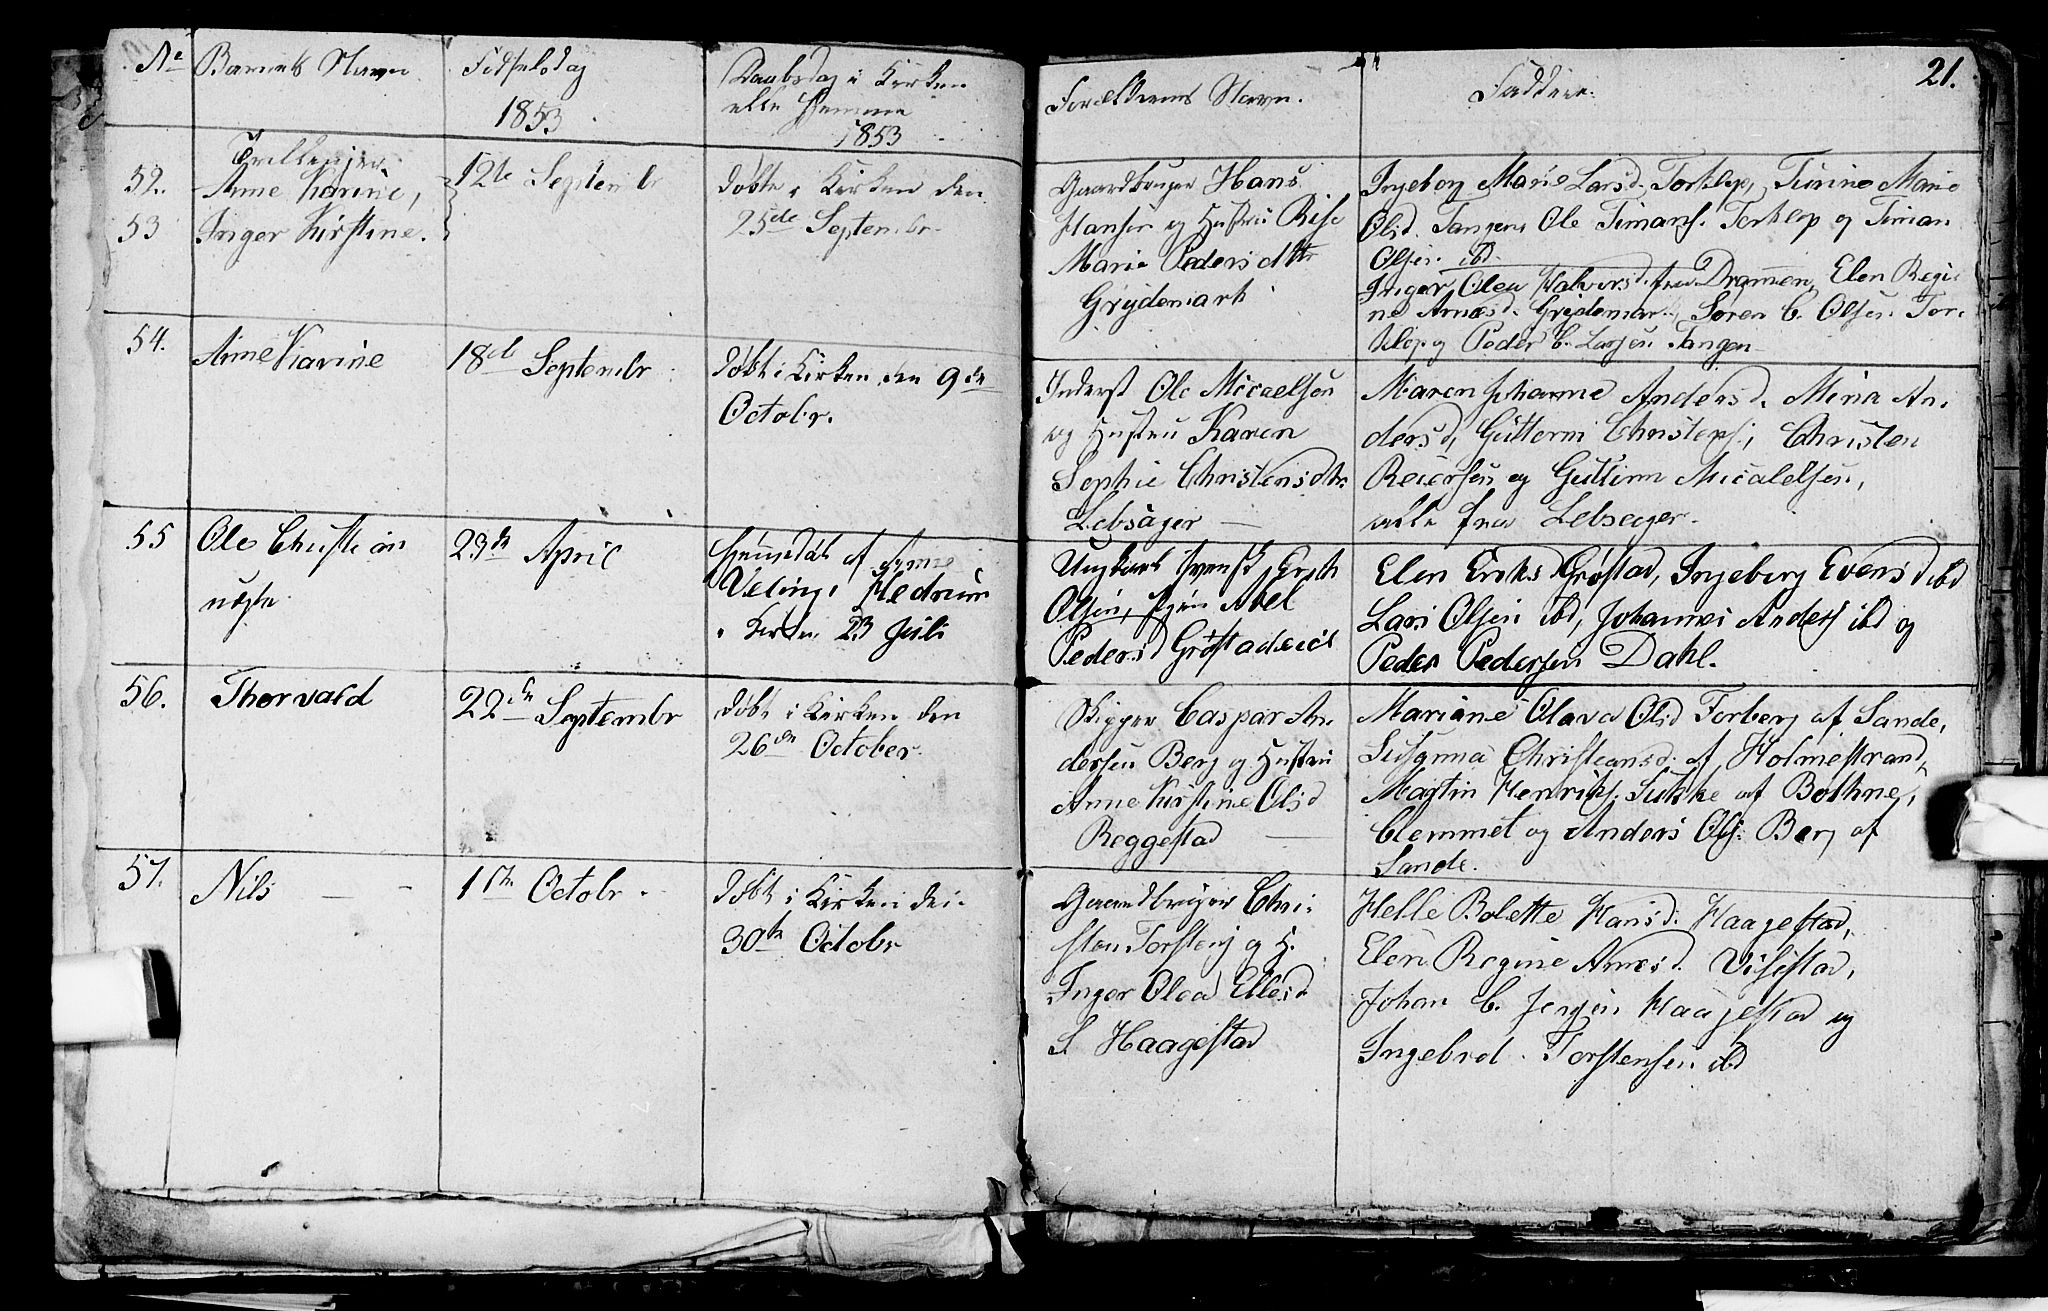 No Barnets Navn Fødselsdag 1853 Daabsdag i Kirken
elle Hjemme
1853
Forældrenes Navn. Faddere. 21.
52.
53
Tvillinger
Anne Karine,
Inger Kirstine.
12te Septembr
døbte i Kirken den
25de Septembr.
Gaardbruger Hans
Hansen og Hustru Rise
Marie Pedersdttr
Grydemark
Ingeborg Marie Larsd. Torklep, Turine Marie
Olsd. Tangen, Ole Timans. Torklep og Timan
Olsen ibd.
Inger Olea Halvorsd. fra Dramen, Elen Regi
ne Arnesd. Grydemark, Søren C. Olsen Tor
klep og Peder C. Larsen Tangen
54.
Anne Karine
18de Septembr
døbt i Kirken den 9de
Octobr.
Inderst Ole Micaelsen
og Hustru Karen
Sophie Christensdtr.
Lebsager
Maren Johanne Andersd. Mina An
dersd, Guttorm Christens., Christen
Reiersen og Guttorm Micalelsen,
alle fra Lebsager.
55
Ole Christian
uægte
23de April
hjemmedøbt af
i Kirken 23 Juli
Ungkarl Svensk, Erik
Olsen, Pigen Abel
Pedersd Grøstadeiet
Elen Eriks Grøstad, Ingeborg Evensd ibd
Lars Olsen ibd, Johannes Anders ibd og
Peder Pedersen Dahl.
56.
Thorvald
22de Septembr
døbt i Kirken den
26de October.
Skipper Caspar An
dersen Berg og Hustru
Anne Kirstine Olsd
Reggestad
Mariane Olava Olsd Forberg af Sande,
Susanna Christiansd. af Holmestrand,
Martin Henriks. Sukke af Bothne,
Clemmet og Anders Ols. Berg af
Sande.
57.
Nils
1ste Octobr.
døbt i Kirken den
30te Octobr
Gaardbruger Chri
sten Torstens og H.
Inger Olea Ellesd
S Haagestad
Helle Bolette Hansd. Haagestad,
Elen Regine Arnesd. Vissestad,
Johan C. Jensen Haagestad og
Ingebret Torstensen ibd